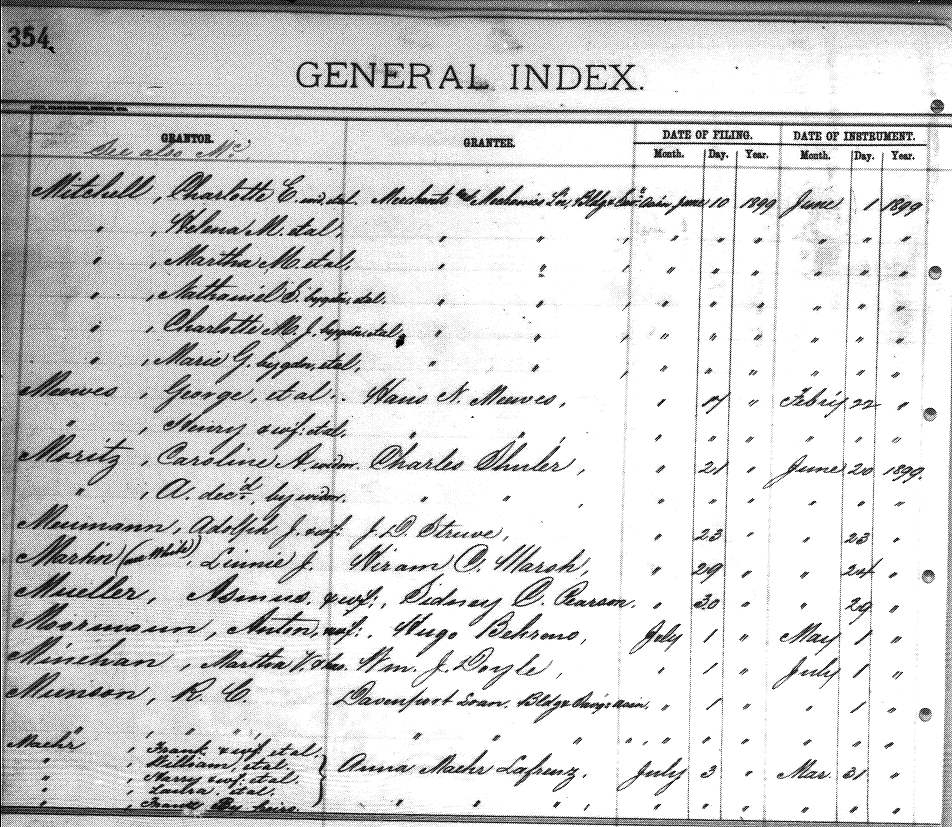 354
GENERAL INDEX.
GRANTOR. GRANTEE. DATE OF FILING. DATE OF INSTRUMENT.
See also Mc. Month. Day. Year. Month. Day. Year.
Mitchell, Charlotte E. wid. et al. Merchants and Mechanics Bldg & Assn June 10 1899 June 1 1899
" , Helena M. et al. " " , " " " " " "
" , Martha M. et al. " " , " " " " " "
" , Nathaniel S. by gdn, et al. " " , " " " " " "
" , Charlotte M. J. by gdn, et al. " " , " " " " " "
" , Marie G. by gdn, et al. " " , " " " " " "
Meewes , George, et al. Hans N. Meewes, " 17 " Feb'ry 22 "
" , Henry & wf. et al. " " , " " " " " "
Moritz , Caroline A widow. Charles Shuler, " 21 " June 20 1899.
" , A. dec'd, by widow. " " , " " " " " "
Neumann, Adolph J. & wf. J. D. Struve, " 23 " " 23 "
Martin (nee White), Linnie J. Hiram C. Marsh, " 29 " " 24 "
Mueller, Asmus, & wf., Sidney C. Pearson. " 30 " " 29 "
Moormann, Anton, & wf., Hugo Behrens, July 1 " May 1 "
Minehan , Martha V. & hus. Wm. J. Doyle, " 1 " July 1 "
Munson, R. C. Davenport Loan, Bldg & Sav'gs Assn. " 1 " " 1 "
" , " " " " " " , " " " " " "
Maehr , Frank & wf. et al.
" , William, et al. Anna Maehr Lafrenz, July 3 " Mar. 31 "
" , Harry & wf. et al.
" , Laura, et al.
" , Frank By heirs. " " " , " " " " " "